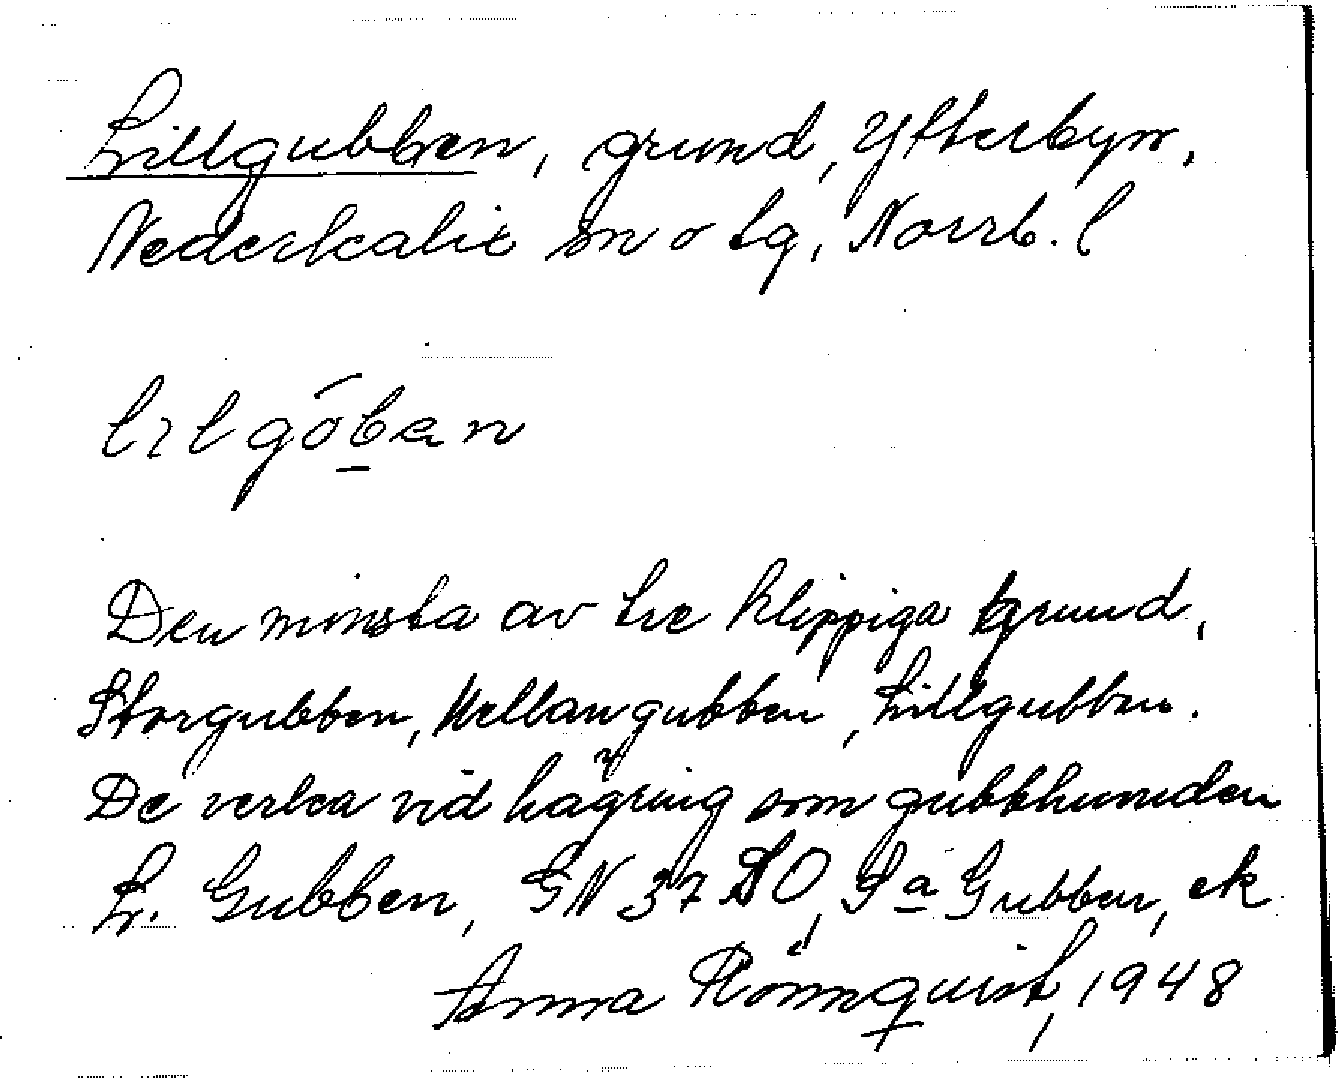 Lillgubben, grund, Ytterbyn,
Nederkalix sn o tg, Norrb. l
lilgóban
Den minsta av tre klippiga grund,
Storgubben, Mellangubben, Lillgubben.
De verka vid hägring som gubbhuvuden
L. Gubben, GN 37 SO, Sa Gubben, ek
Anna Rönnquist, 1948